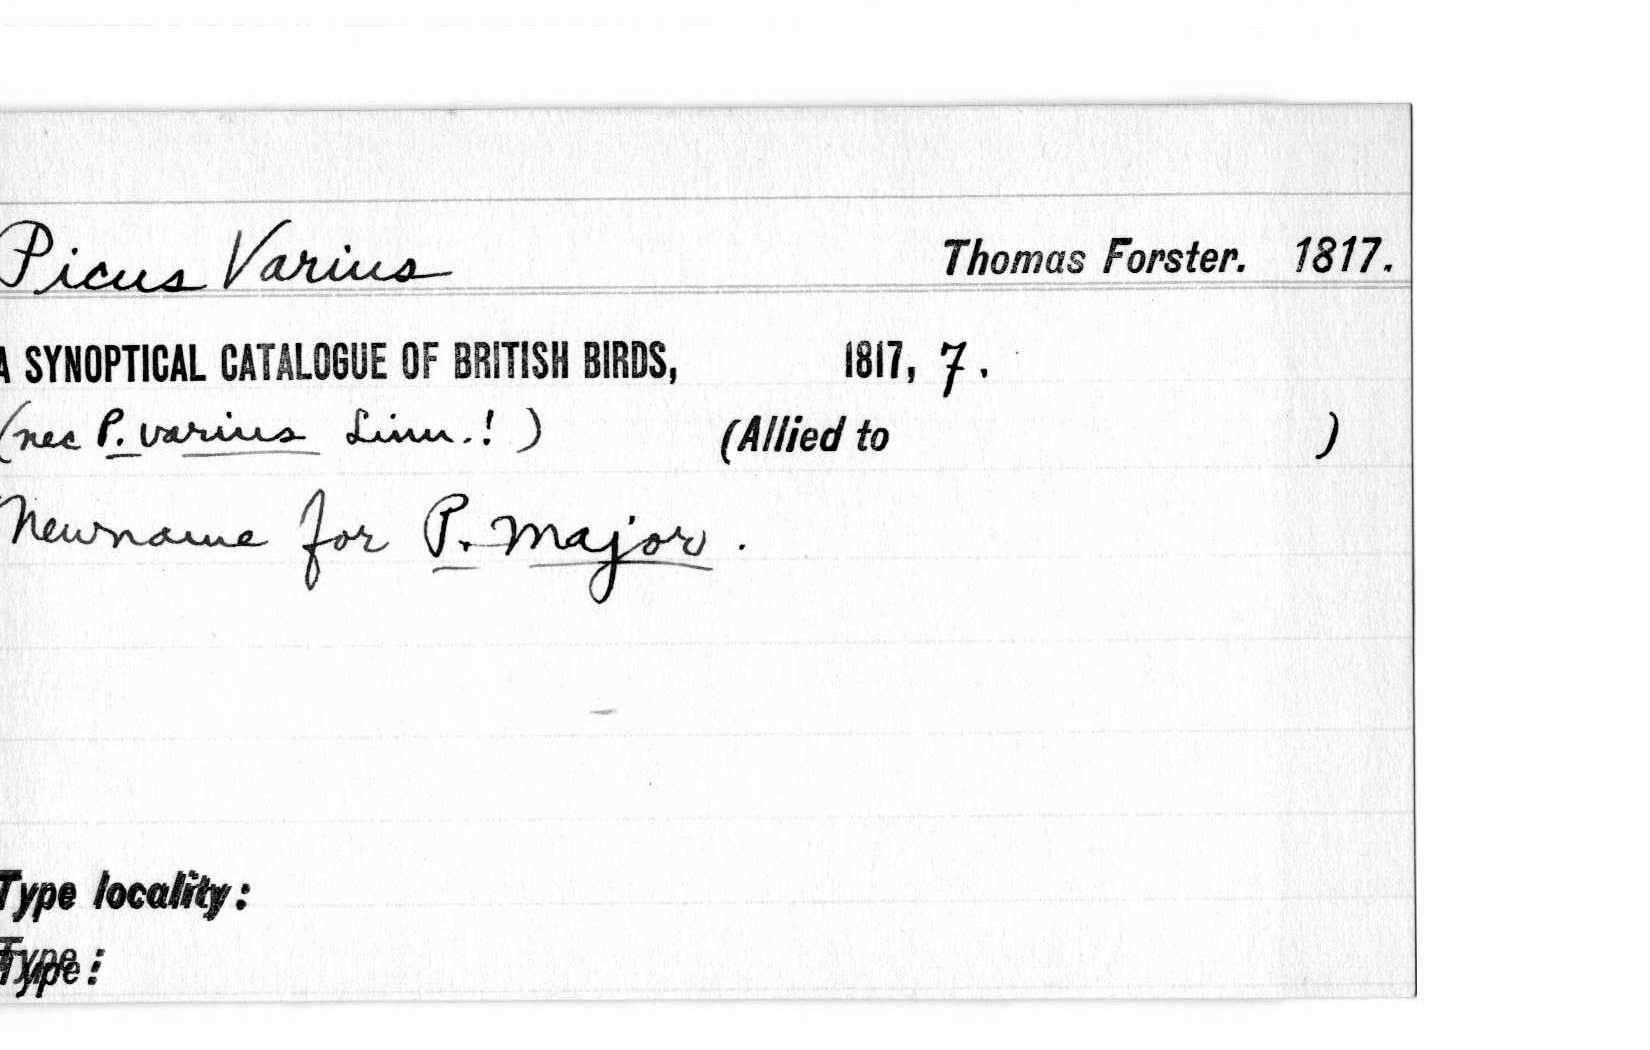 Picus Varius Thomas Forster. 1817.
A SYNOPTICAL CATALOGUE OF BRITISH BIRDS, 1817, 7.
(nec P. varius Linn.!) (Allied to )
New name for P. major.
Type locality:
Type: